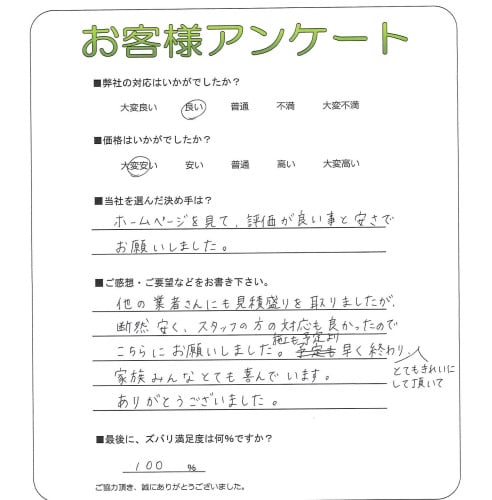 お客様アンケート
■弊社の対応はいかがでしたか？
大変良い 良い 普通 不満 大変不満
■価格はいかがでしたか？
大変安い 安い 普通 高い 大変高い
■当社を選んだ決め手は？
ホームページを見て、評価が良い事と安さで
お願いしました。
■ご感想・ご要望などをお書き下さい。
他の業者さんにも見積盛りを取りましたが、
断然安く、スタッフの方の対応も良かったので
こちらにお願いしました。施工も予定より早く終わり、
とてもきれいに
して頂いて
家族みんなとても喜んでいます。
ありがとうございました。
■最後に、ズバリ満足度は何％ですか？
100 ％
ご協力頂き、誠にありがとうございました。